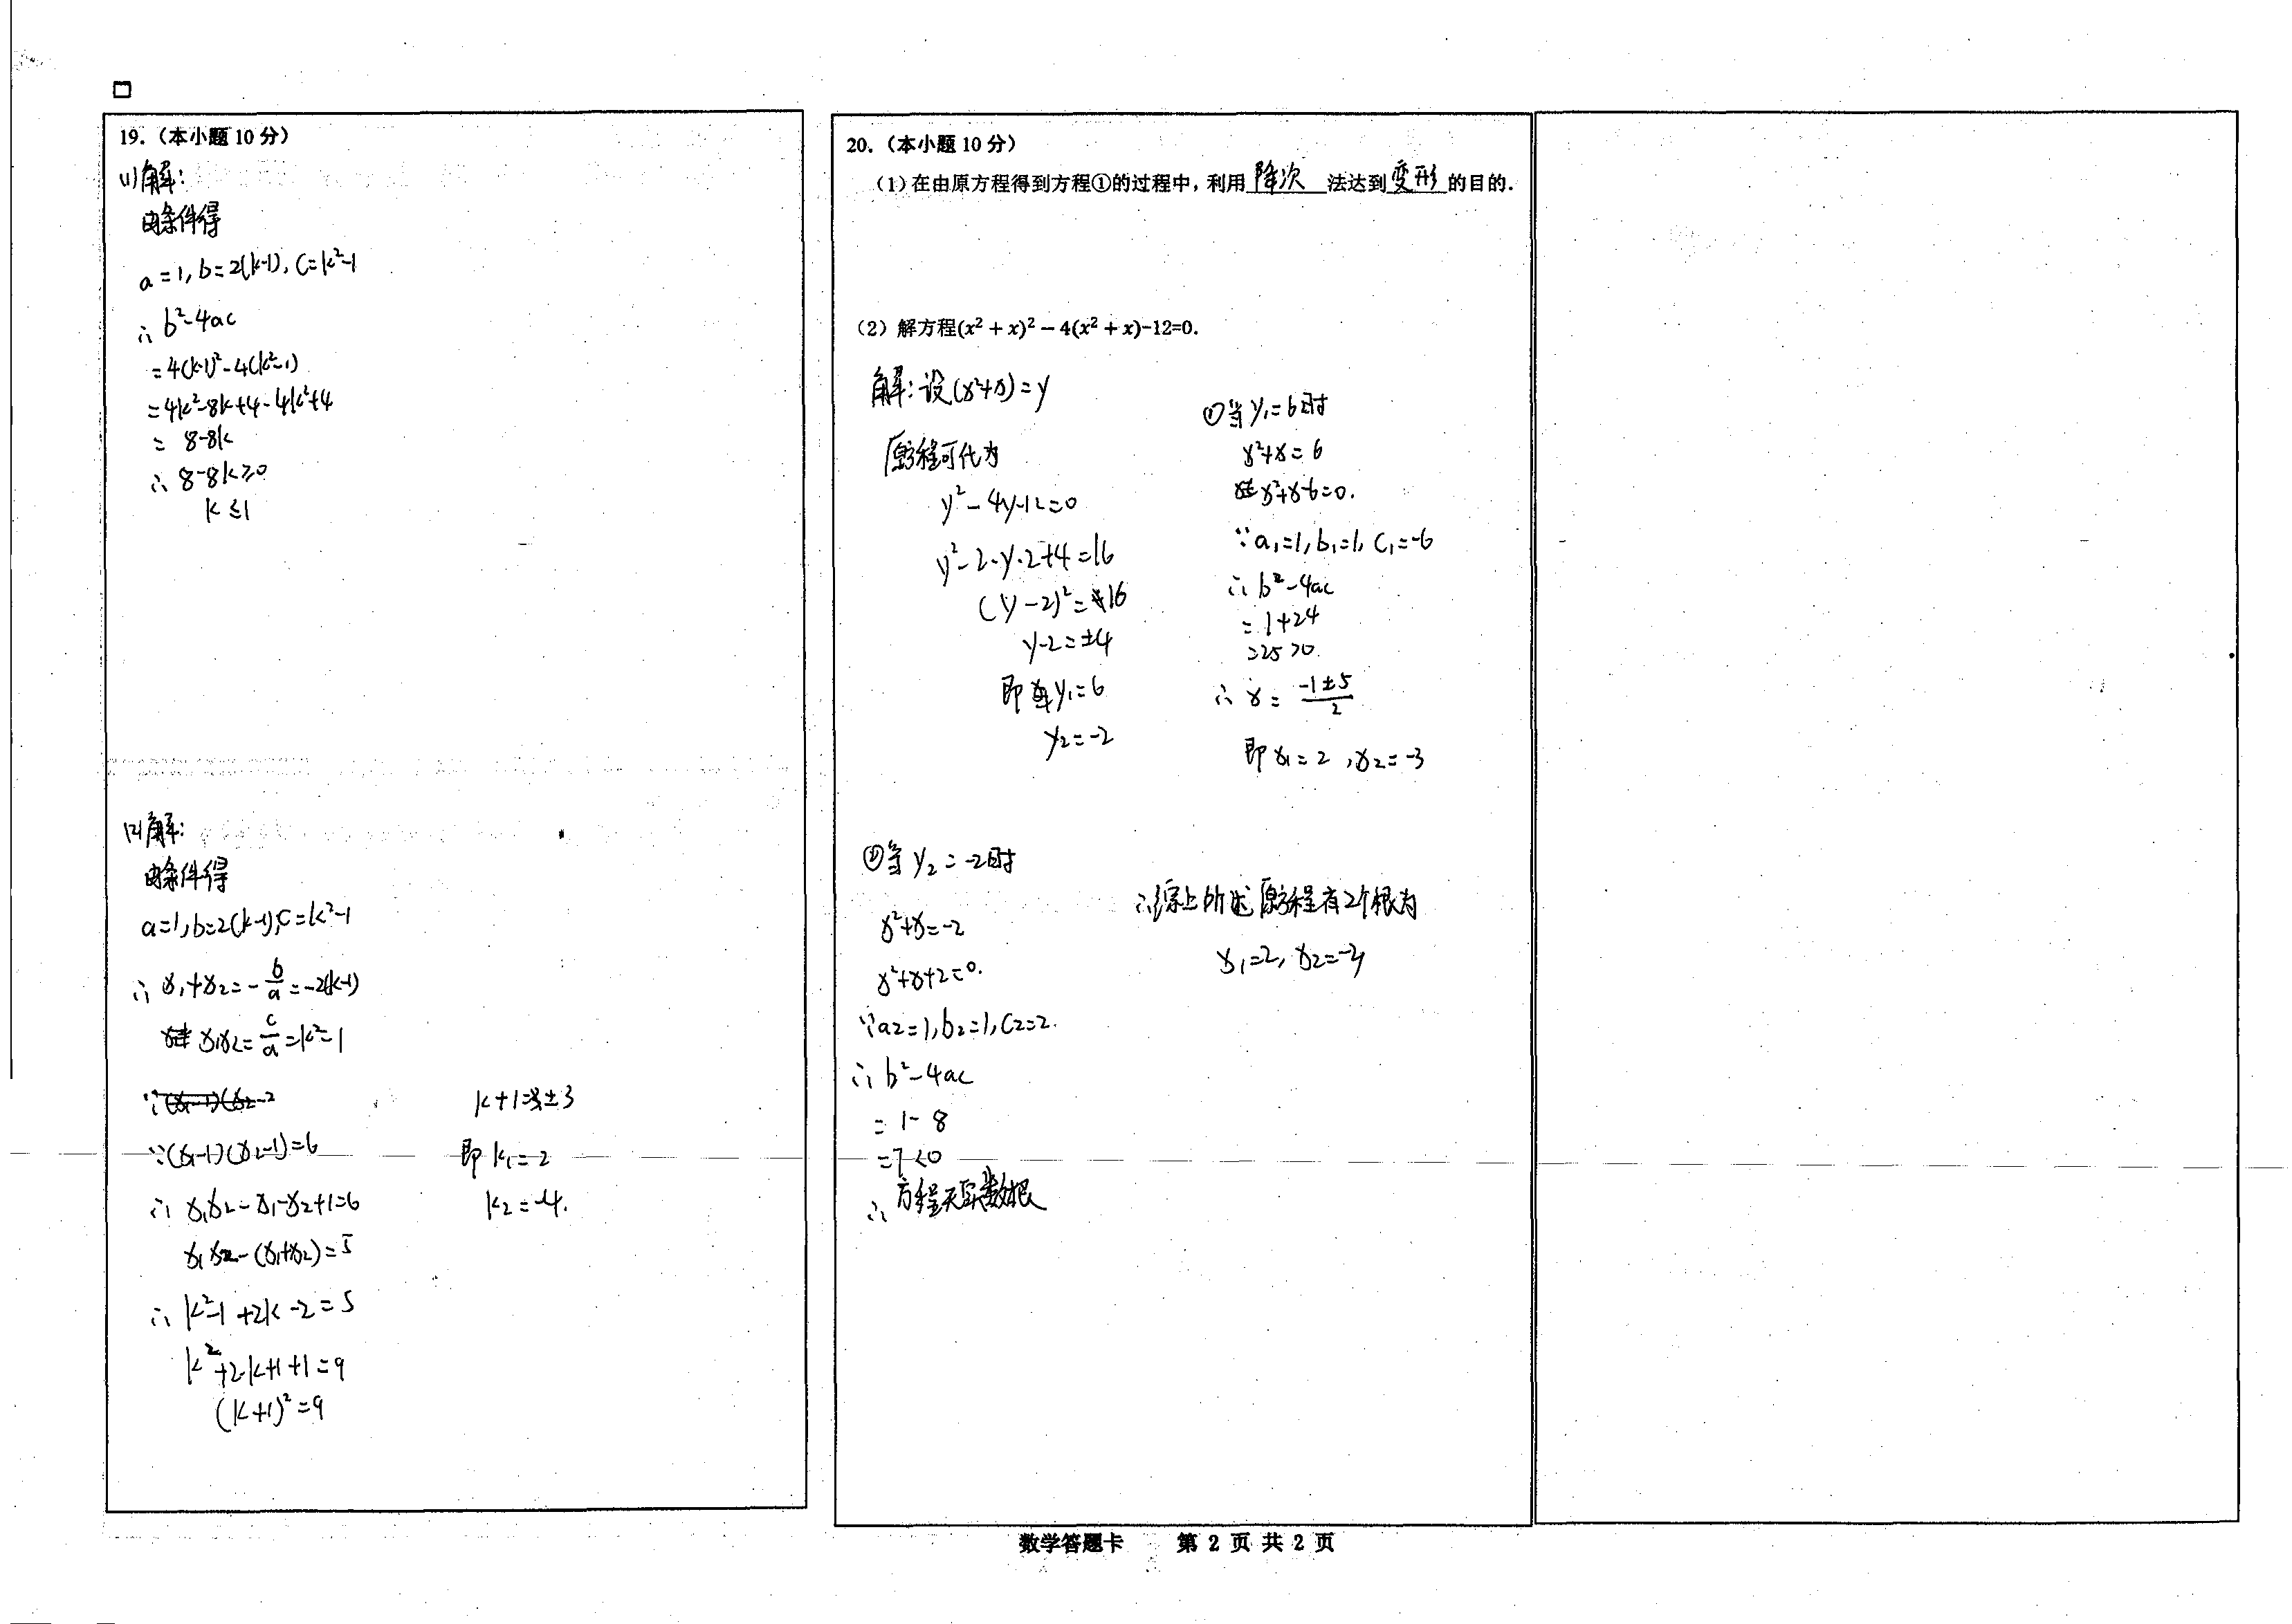 19.（本小题 10 分）
(1)解：
由条件得
a=1, b=2(k-1), c=k²-1
∴ b²-4ac
=4(k-1)²-4(k²-1)
=4k²-8k+4-4k²+4
= 8-8k
∴ 8-8k≥0
k≤1
(2)解：
由条件得
a=1, b=2(k-1), c=k²-1
∴ x₁+x₂=-b/a=-2(k-1)
x₁x₂=c/a=k²-1
∵(x₁-1)(x₂-1)=6
∴ x₁x₂-x₁-x₂+1=6
x₁x₂-(x₁+x₂)=5
∴ k²-1+2k-2=5
k²+2·k+1+1=9
(k+1)²=9
k+1=±3
即 k₁=2
k₂=-4.
20.（本小题 10 分）
（1）在由原方程得到方程①的过程中，利用 降次 法达到 变形 的目的.
（2）解方程(x² + x)² − 4(x² + x)-12=0.
解：设(x²+x)=y
原方程可化为
y²-4y-12=0
y²-2·y·2+4=16
(y-2)²=16
y-2=±4
即 y₁=6
y₂=-2
①当y₁=6时
x²+x=6
x²+x-6=0.
∵a₁=1, b₁=1, c₁=-6
∴ b²-4ac
= 1+24
=25>0.
∴ x= (-1±5)/2
即 x₁=2, x₂=-3
②当 y₂=-2时
x²+x=-2
x²+x+2=0.
∵a₂=1, b₂=1, c₂=2.
∴ b²-4ac
= 1-8
=7<0
∴方程无实数根
∴综上所述 原方程有2个根为
x₁=2, x₂=-3
数学答题卡 第 2 页 共 2 页